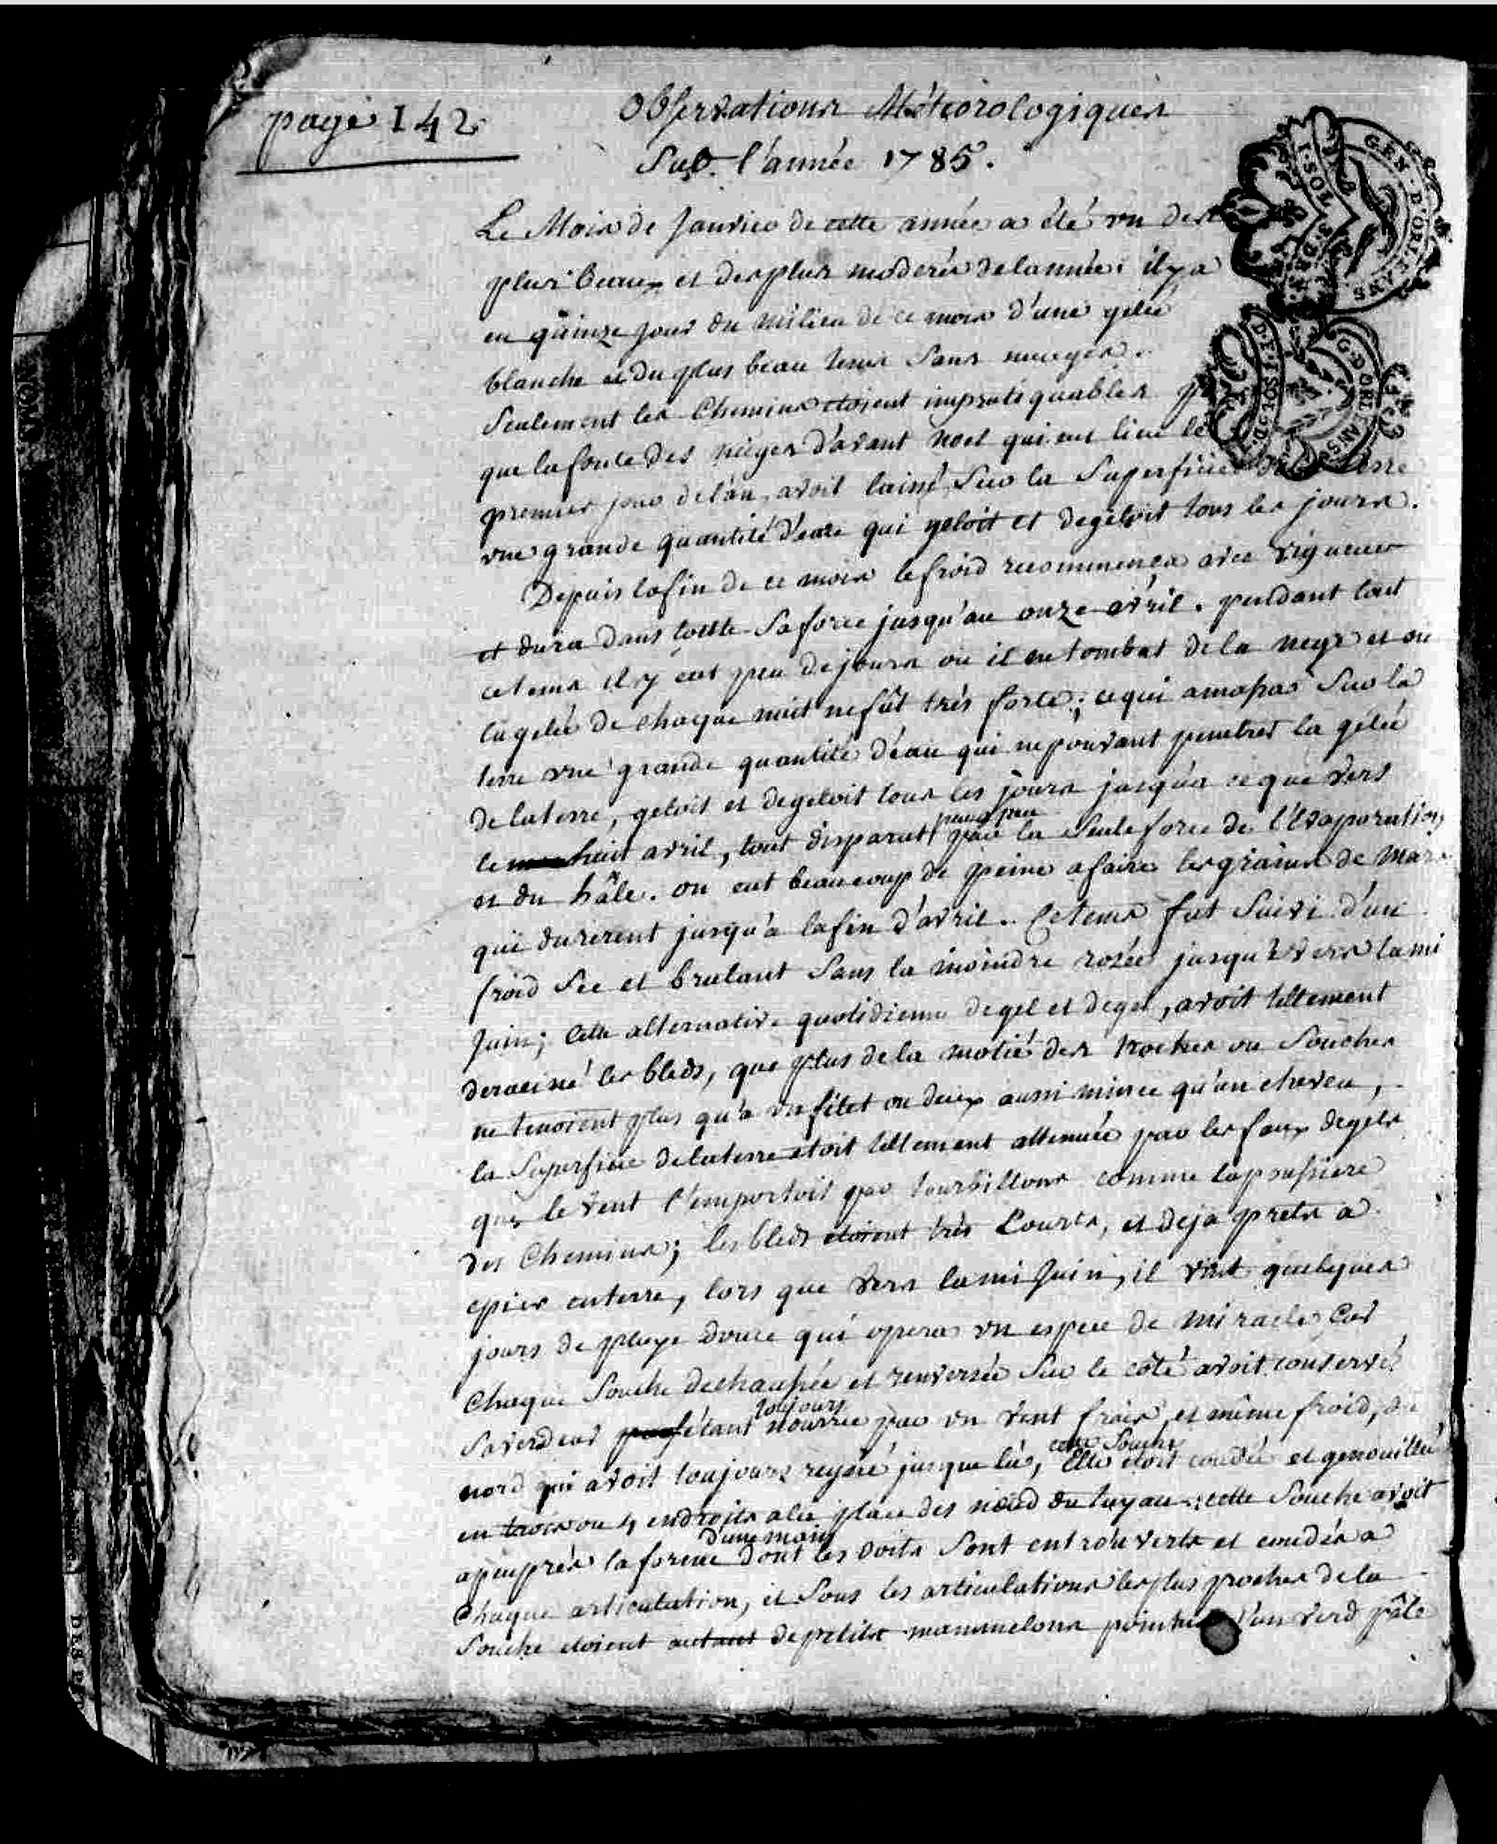 page 142
Observations Météorologiques
Sur l'année 1785.
Le Mois de Janvier de cette année a été un des
plus beaux et des plus moderés de lannée. il y a
eu quinze jours du milieu de ce mois d'une gelée
blanche et du plus beau tems sans nuages.
Seulement les Chemins etoient impratiquables
que la fonte des neiges d'avant noel qui eut lieu le
premier jour de l'an, avoit laissé sur la Superficie de la terre
une grande quantité d'eau qui geloit et degeloit tous les jours.
Depuis lafin de ce mois le froid recommenca avec vigueur
et dura dans toutte sa force jusqu'au onze avril. pendant tout
ce tems il y eut peu de jours ou il ne tombat de la nege et ou
la gelée de chaque nuit ne fût très forte; ce qui amassa sur la
terre une grande quantité d'eau qui ne pouvant penetrer la gelée
de la terre, geloit et degeloit tous les jours jusqu'a ce que vers
le huit avril, tout disparut peu a peu par la seule force de l'évaporation
et du hâle. on eut beaucoup de peine a faire les grains de Mars
qui durerent jusqu'à lafin d'avril. Ce tems fut suivi d'un
froid sec et brulant sans la moindre rozée jusqu'à vers la mi
Juin; cette alternative quotidienne de gel et degel, avoit tellement
deraciné les bleds, que plus de la motié des troches ou souches
ne tenoient plus qu'a un filet ou deux aussi mince qu'un cheveu,
la Superficie de la terre etoit tellement attenuée par les faux degels
que le vent l'emportoit par tourbillons comme la poussiere
des Chemins; les bleds etoient très Courts, et deja prets a
epier en terre, lors que vers la mi Juin, il vint quelques
jours de pluye douce qui opera un espece de miracle, Car
Chaque souche dechaussée et renversée sur le côté avoit conservé
sa verdeur étant toujours nourrie par un vent frais, et même froid, du
nord qui avoit toujours regné jusque là, cette souche Elle etoit coudée et genouillée
en trois ou 4 endroits a la place des noeud du tuyau; cette souche avoit
apeuprès la forme d'une main dont les doits sont entrouverts et coudés a
Chaque articulation, et sous les articulations les plus proches de la
souche etoient autant de petits mammelons pointus d'un verd pâle